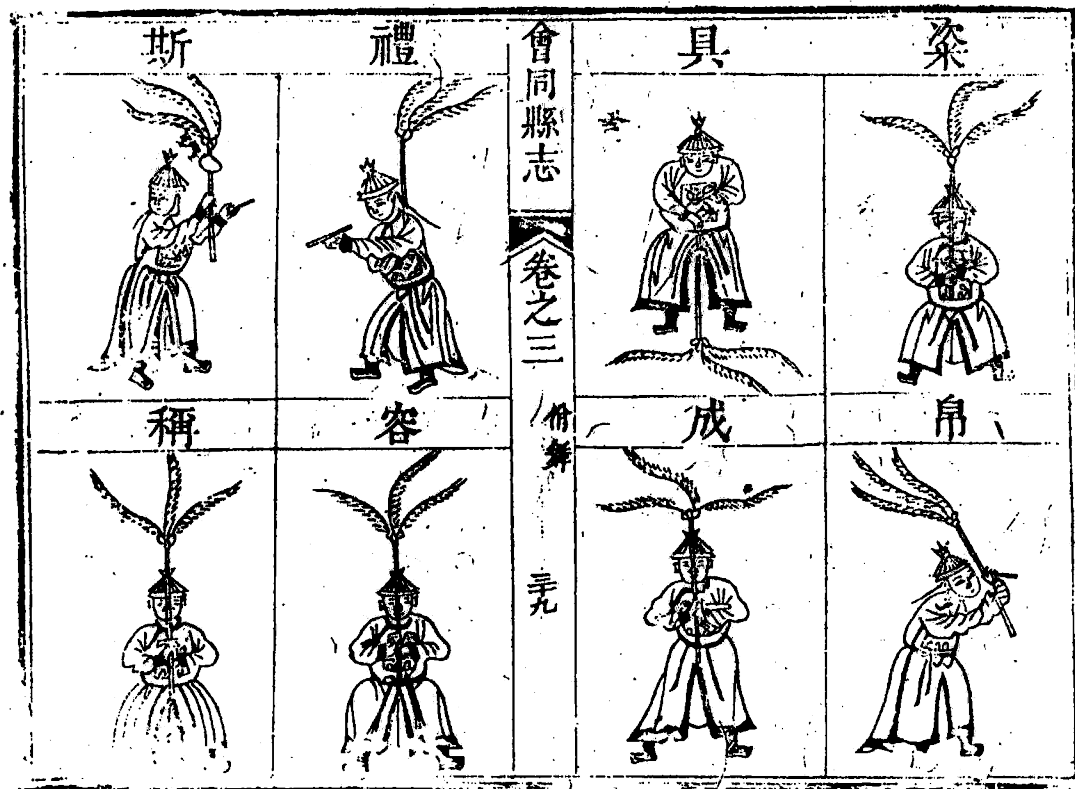 粢
帛
具
成
會同縣志
卷之三
佾舞
三十九
禮
容
斯
稱